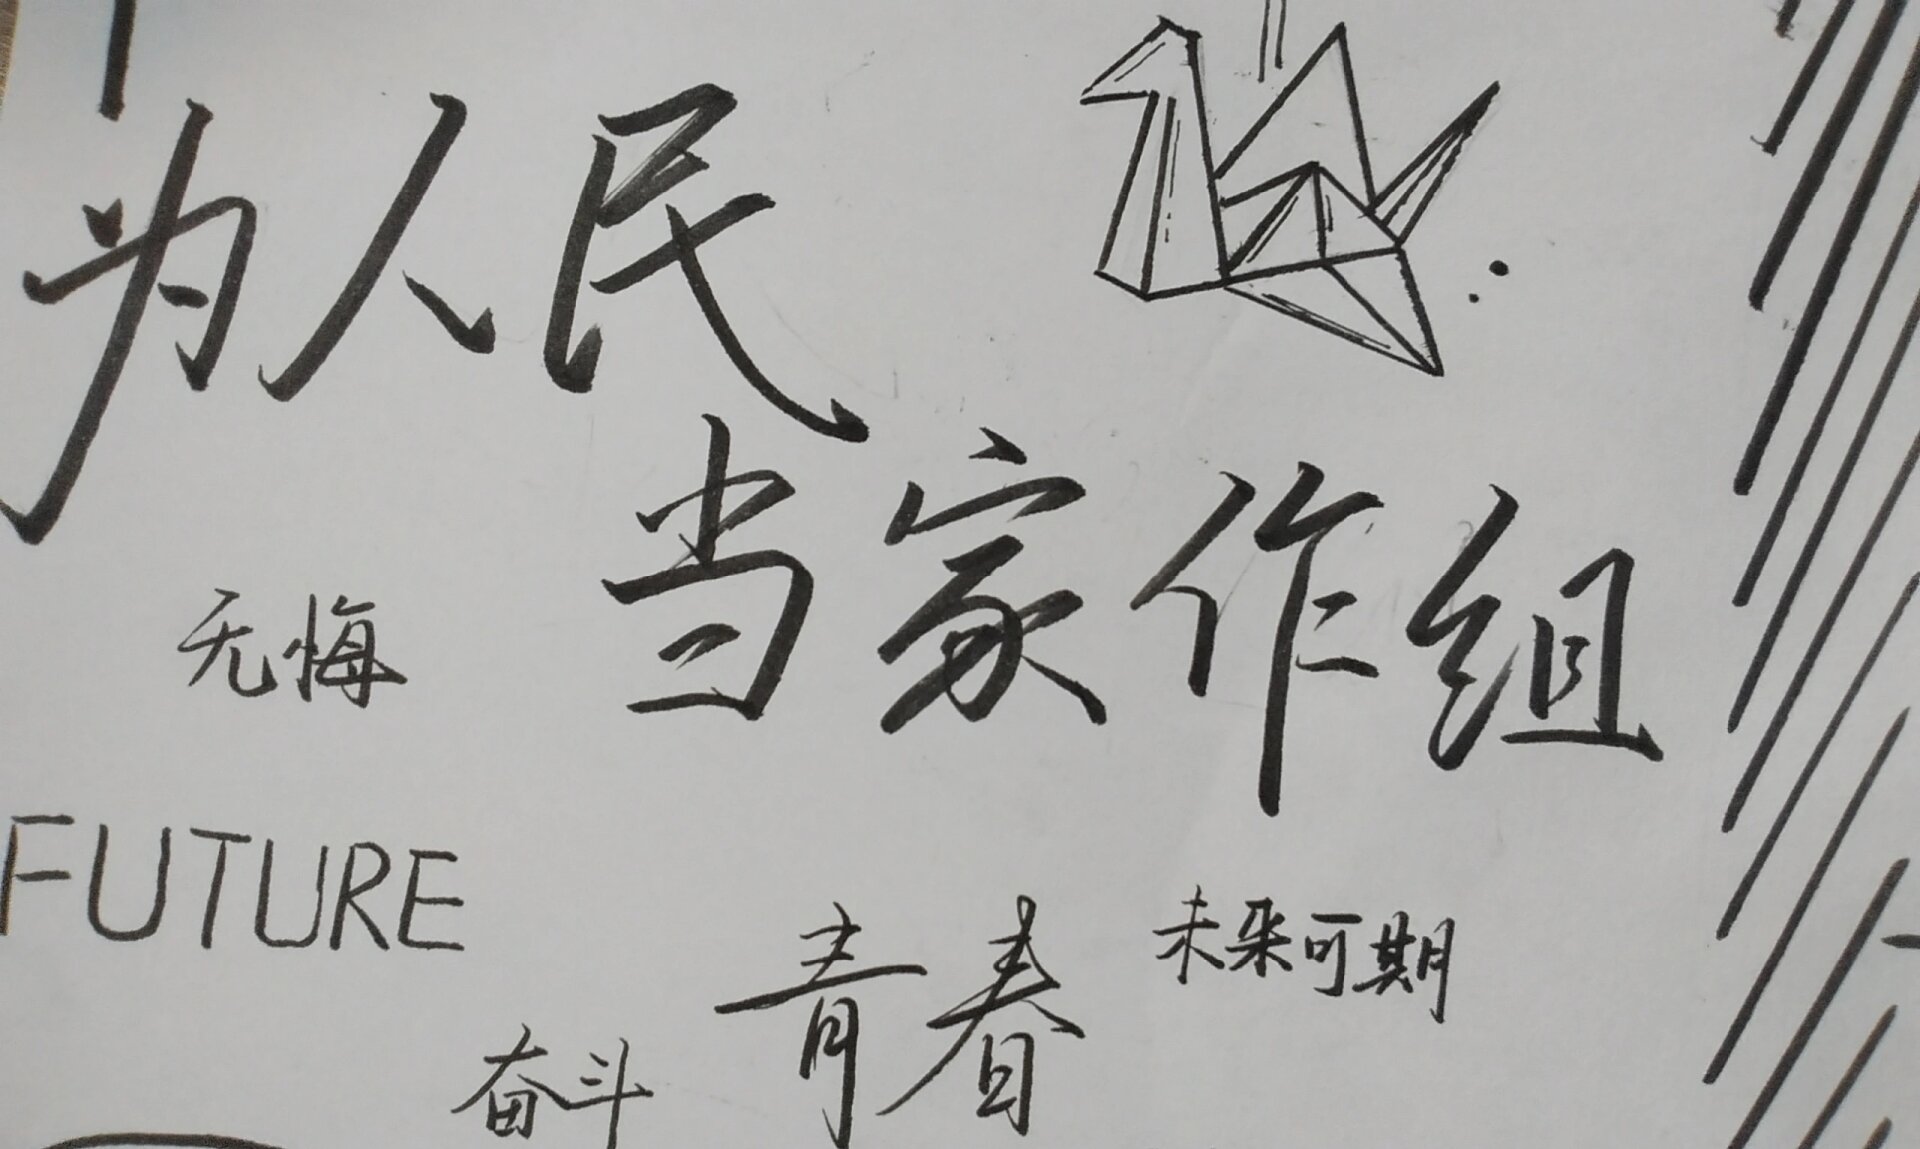 为人民
当家作组
无悔
FUTURE
青春
未来可期
奋斗